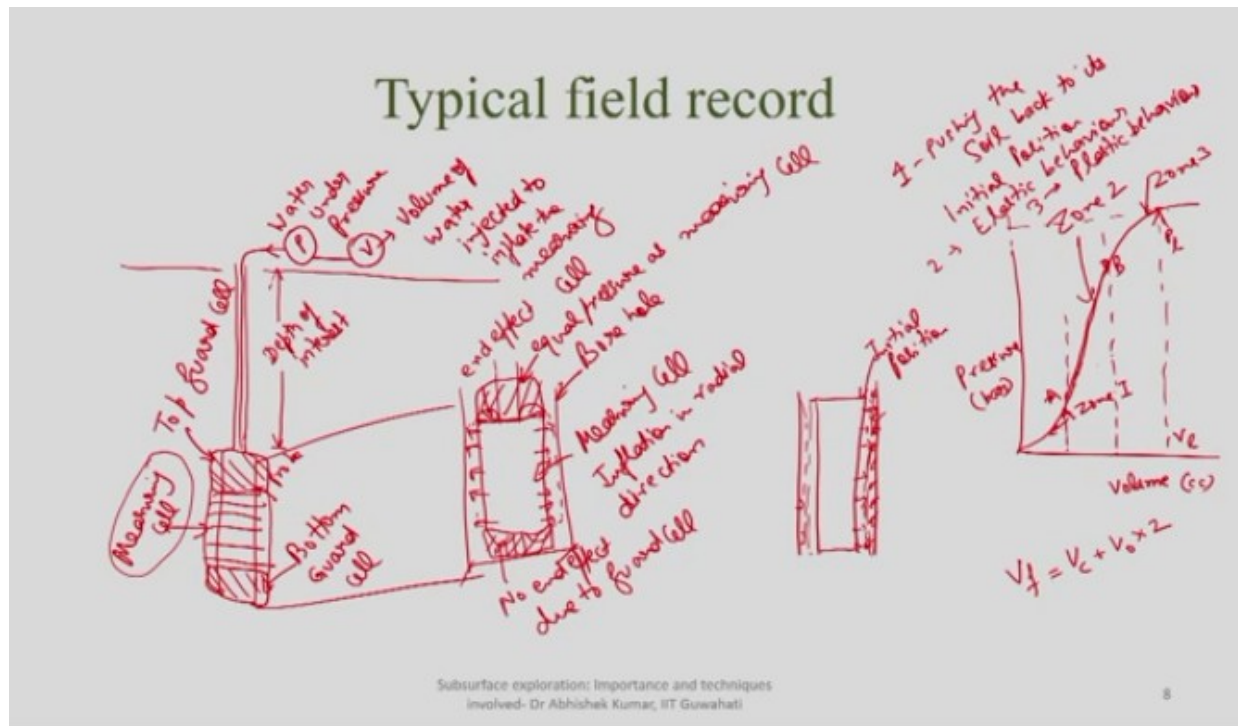 Typical field record
Water
under
Pressure
P
V
Volume of
water
injected to
inflate the
measuring
cell
Top guard cell
Depth of
interest
Measuring
cell
Bottom
Guard
cell
end effect
equal pressure as measuring cell
Bore hole
Measuring cell
Inflation in radial
direction
No end effect
due to guard cell
Initial
position
1 - Pushing the
soil back to its
Initial Position
2 → Elastic behaviour
3 → Plastic behaviour
Zone 2
Zone 3
B
A
Zone I
Pressure
Volume (cc)
Subsurface exploration: Importance and techniques
involved- Dr Abhishek Kumar, IIT Guwahati
8